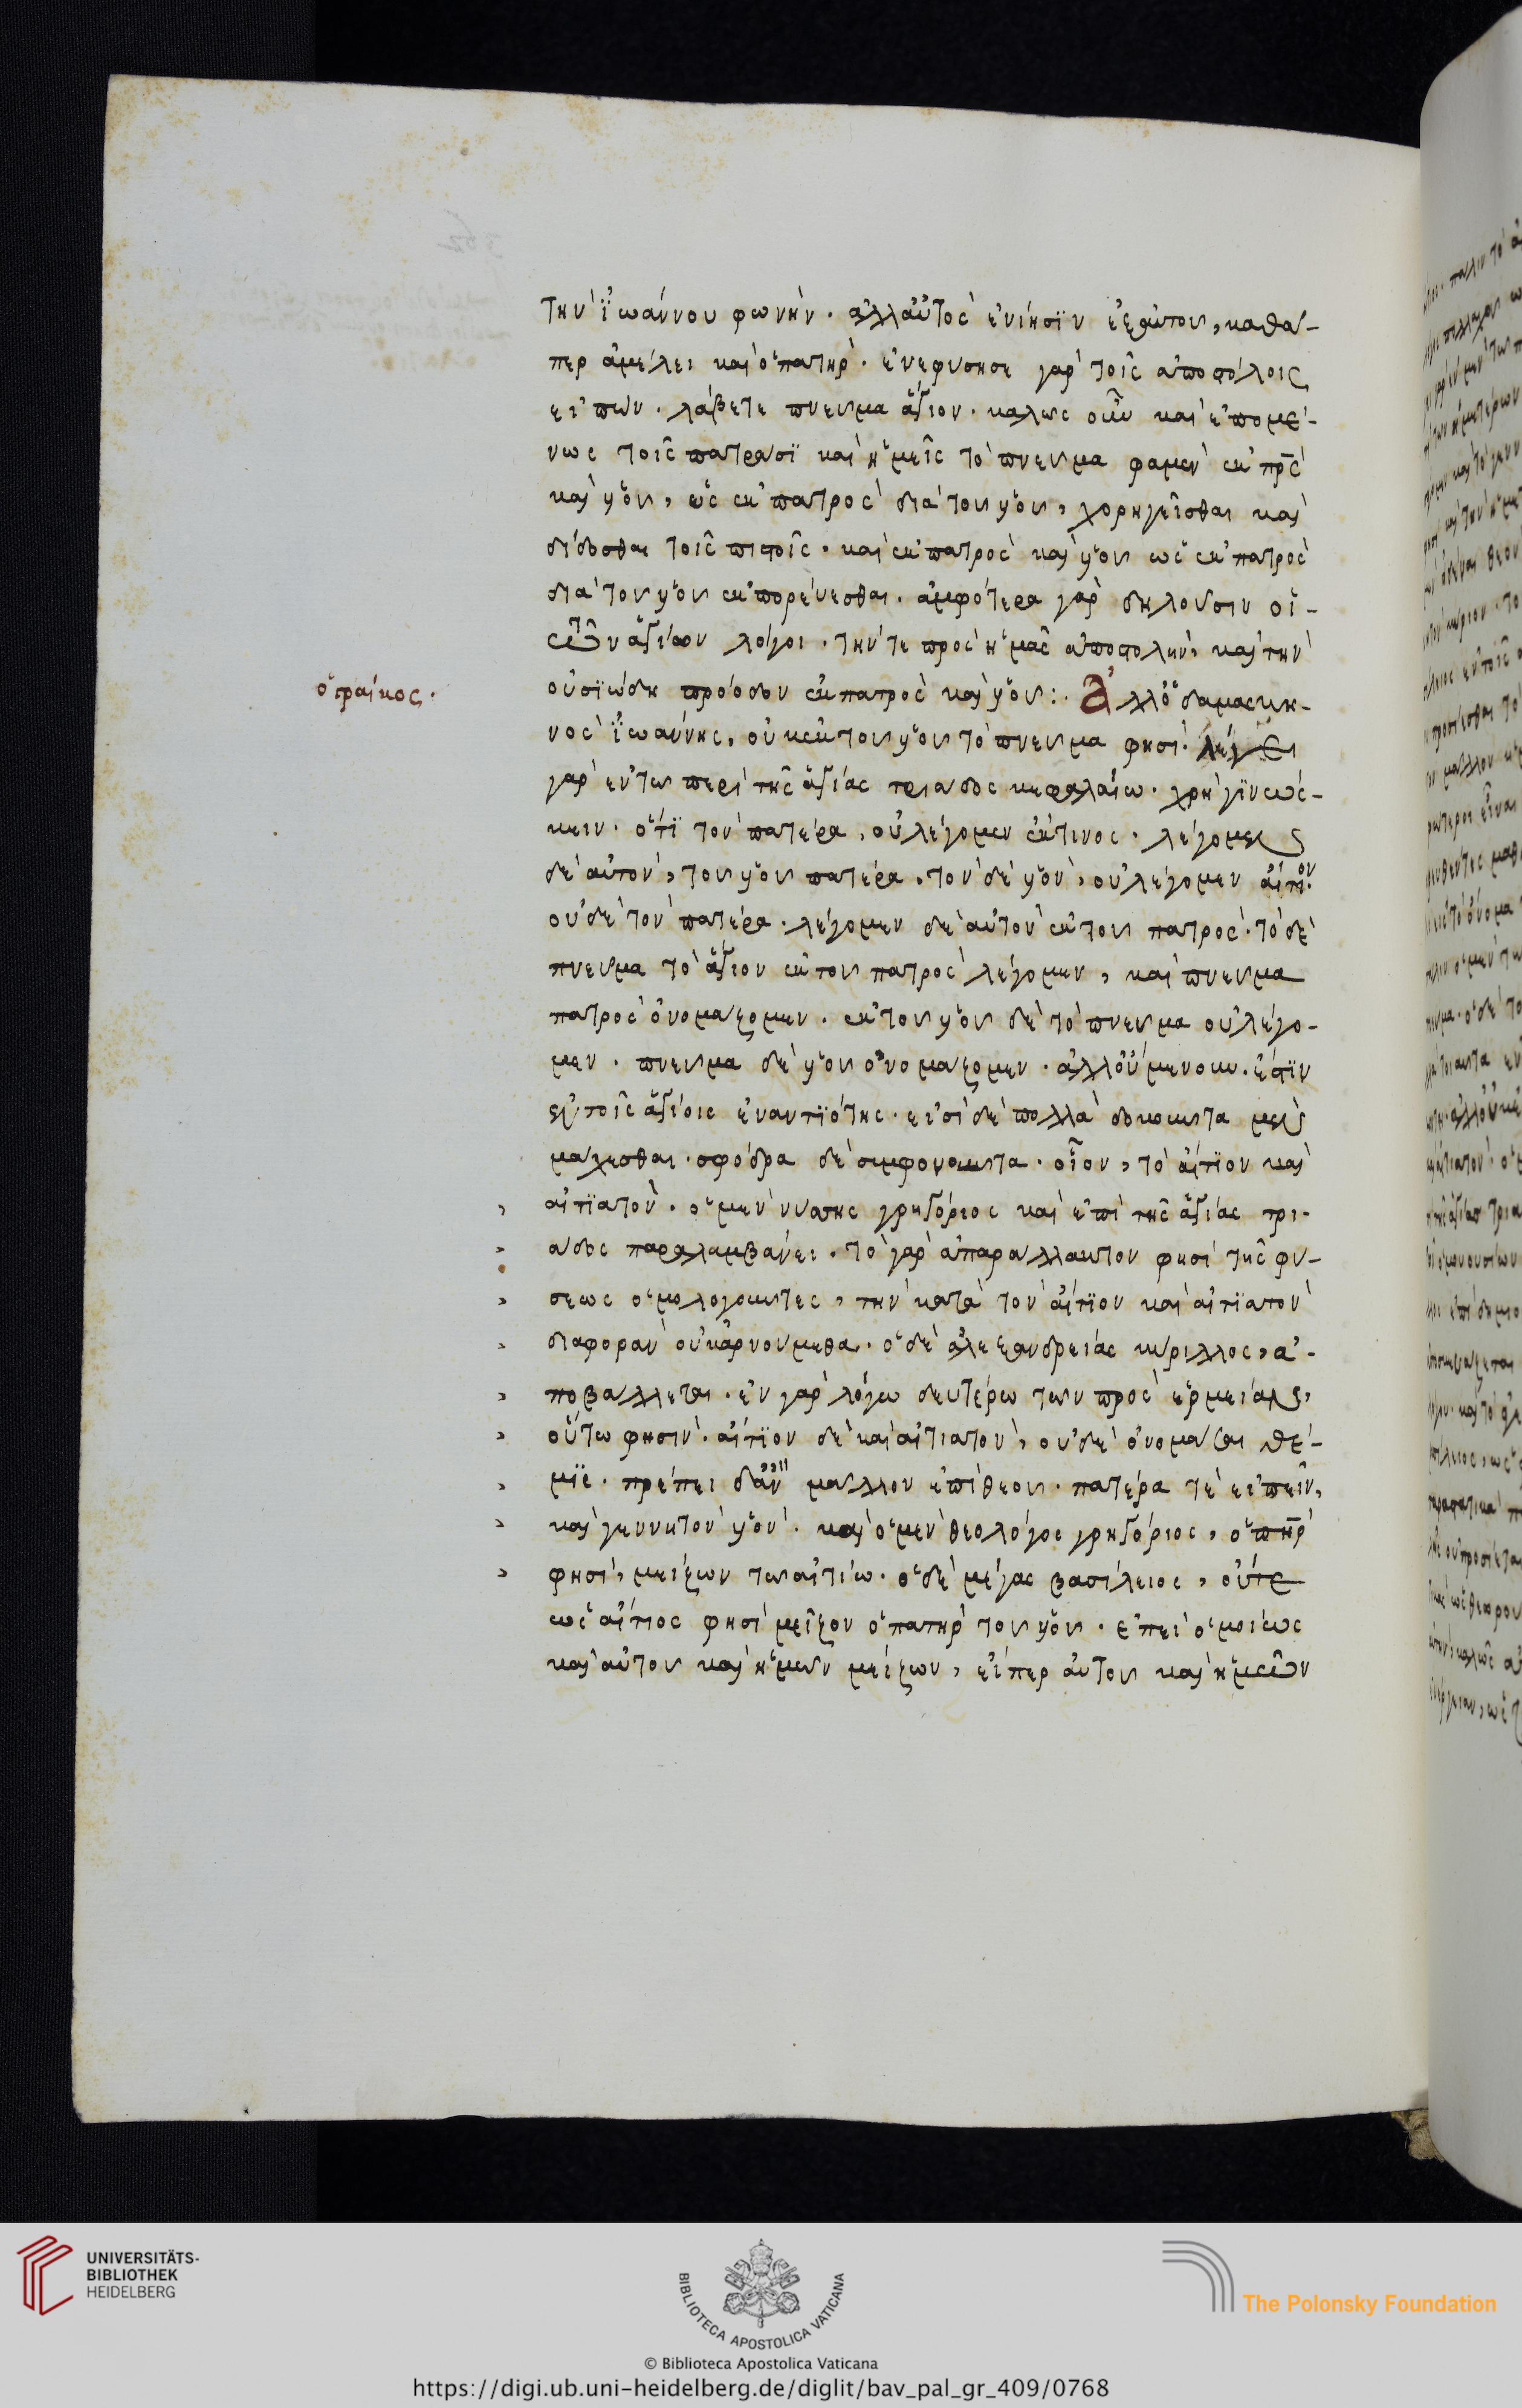 τὴν ἰωάννου φωνὴν. ἀλλ' αὐτὸς ἐνίησιν ἐξ αὐτοῦ, καθά-
περ ἀμέλει καὶ ὁ πατὴρ. ἐνεφύσησε γὰρ τοῖς ἀποστόλοις
εἰπὼν. λάβετε πνεῦμα ἅγιον. καλῶς οὖν καὶ ἑπομέ-
νως τοῖς πατράσι καὶ ἡμεῖς τὸ πνεῦμα φαμὲν ἐκ πρς
καὶ υἱοῦ, ὡς ἐκ πατρὸς διὰ τοῦ υἱοῦ, χορηγεῖσθαι καὶ
δίδοσθαι τοῖς πιστοῖς. καὶ ἐκ πατρὸς καὶ υἱοῦ ὡς ἐκ πατρὸς
διὰ τοῦ υἱοῦ ἐκπορεύεσθαι. ἀμφότερα γὰρ δηλοῦσιν οἱ
τῶν ἁγίων λόγοι. τήν τε πρὸς ἡμᾶς ἀποστολὴν, καὶ τὴν
ὁ γραικος.
οὐσιώδη πρόοδον ἐκ πατρὸς καὶ υἱοῦ: ἀλλ' ὁ δαμασκη-
νὸς ἰωάννης, οὐκ ἐκ τοῦ υἱοῦ τὸ πνεῦμα φησί. λέγει
γὰρ ἐν τῶ περὶ τῆς ἁγίας τριάδος κεφαλαίω. χρὴ γινώσ-
κειν. ὅτι τὸν πατέρα, οὐ λέγομεν ἔκ τινος. λέγομεν
δὲ αὐτὸν, τοῦ υἱοῦ πατέρα. τὸν δὲ υἱὸν, οὐ λέγομεν αἴτιον.
οὐδὲ τὸν πατέρα. λέγομεν δὲ αὐτὸν ἐκ τοῦ πατρὸς. τὸ δὲ
πνεῦμα τὸ ἅγιον ἐκ τοῦ πατρὸς λέγομεν, καὶ πνεῦμα
πατρὸς ὀνομάζομεν. ἐκ τοῦ υἱοῦ δὲ τὸ πνεῦμα οὐ λέγο-
μεν. πνεῦμα δὲ υἱοῦ ὀνομάζομεν. ἀλλ' οὐμενοῦν. ἔστιν
ἐν τοῖς ἁγίοις ἐναντιότης. εἰσὶ δὲ πολλὰ δοκοῦντα μὲν
μάχεσθαι. σφόδρα δὲ συμφονοῦντα. οἷον, τὸ αἴτιον καὶ
αἰτιατὸν. ὁ μὲν νύσσης γρηγόριος καὶ ἐπὶ τῆς ἁγίας τρι-
άδος παραλαμβάνει. τὸ γὰρ ἀπαράλλακτον φησὶ τῆς φύ-
σεως ὁμολογοῦντες, τὴν κατὰ τὸν αἴτιον καὶ αἰτιατὸν
διαφορὰν οὐκ ἀρνούμεθα. ὁ δὲ ἀλεξανδρείας κύριλλος, ἀ-
ποβάλλεται. ἐν γὰρ λόγω δευτέρω τῶν πρὸς ἑρμείαν,
οὕτω φησὶν. αἴτιον δὲ καὶ αἰτιατὸν, οὐδὲ ὀνομάσαι θέ-
μις. πρέπει δ' ἂν μᾶλλον ἐπὶ θεοῦ. πατέρα τὲ εἰπεῖν,
καὶ γεννητὸν υἱὸν. καὶ ὁ μὲν θεολόγος γρηγόριος, ὁ πηρ
φησὶ, μείζων τῶ αἰτίω. ὁ δὲ μέγας βασίλειος, οὔτε
ὡς αἴτιος φησὶ μεῖζον ὁ πατὴρ τοῦ υἱοῦ. ἐπεὶ ὁμοίως
καὶ αὐτοῦ καὶ ἡμῶν μείζων, εἴπερ αὐτοῦ καὶ ἡμῶν
UNIVERSITÄTS-
BIBLIOTHEK
HEIDELBERG
BIBLIOTECA APOSTOLICA VATICANA
The Polonsky Foundation
© Biblioteca Apostolica Vaticana
https://digi.ub.uni-heidelberg.de/diglit/bav_pal_gr_409/0768